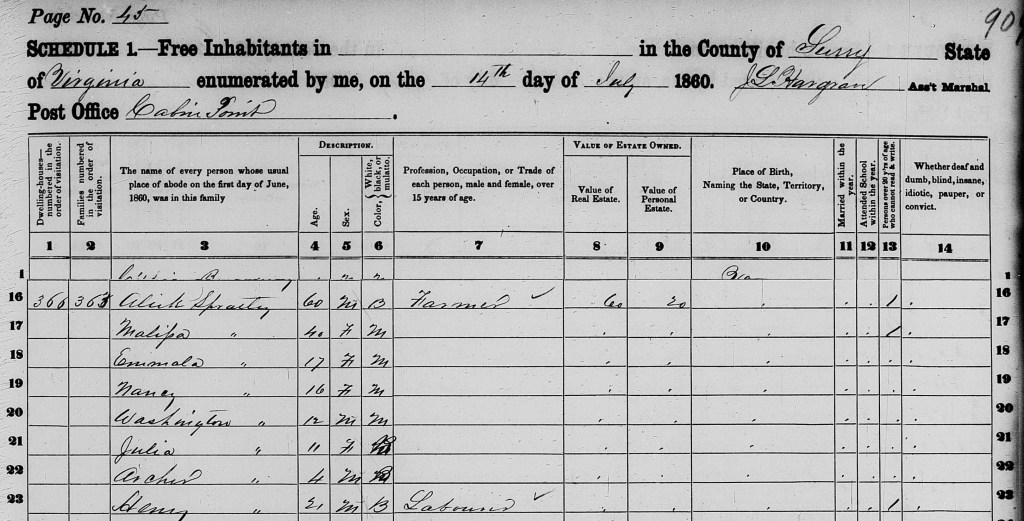 Page No. 45
90
SCHEDULE 1.—Free Inhabitants in in the County of Surry State
of Virginia enumerated by me, on the 14th day of July 1860. J L Hargrave Ass't Marshal.
Post Office Cabin Point.
Dwelling-houses—numbered in the order of visitation.
Families numbered in the order of visitation.
The name of every person whose usual place of abode on the first day of June, 1860, was in this family
DESCRIPTION.
Age.
Sex.
Color, { White, black, or mulatto.
Profession, Occupation, or Trade of each person, male and female, over 15 years of age.
VALUE OF ESTATE OWNED.
Value of Real Estate.
Value of Personal Estate.
Place of Birth, Naming the State, Territory, or Country.
Married within the year.
Attended School within the year.
Persons over 20 y'rs of age who cannot read & write.
Whether deaf and dumb, blind, insane, idiotic, pauper, or convict.
1 2 3 4 5 6 7 8 9 10 11 12 13 14
1 1
16 366 363 Alick Spratley 60 M B Farmer ✓ 60 20 1 16
17 Malissa " 40 F M 1 17
18 Emmala " 17 F M 18
19 Nancy " 16 F M 19
20 Washington " 12 M M 20
21 Julia " 11 F 21
22 Archer " 4 M 22
23 Henry " 21 M B Labourer ✓ 1 23